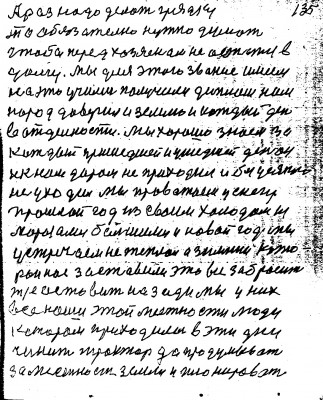 А раз надо делат грядку 135
то обязателно нужно думат
чтобы перед хозяевам не остатся в
долгу. мы для этого звание имеем
на это учили получили дипном нам
народ доверил и землю и каждый ден
в отделности. Мы хорошо знаем що
каждый пришедшей и ушедший ден он
к нам даром не приходил и бесцелно
не уходил мы провожаем у снегу
прошлой год из своим холодом и
морозами бывшими и новой год мы
устречаем не теплой а зимний кото
рой нас заставили это все забросит
и оставит на зади мы у них
все наши этой местности люди
которые приходилы в эти дни
чинит трактор да продумыват
за местност земли и планироват